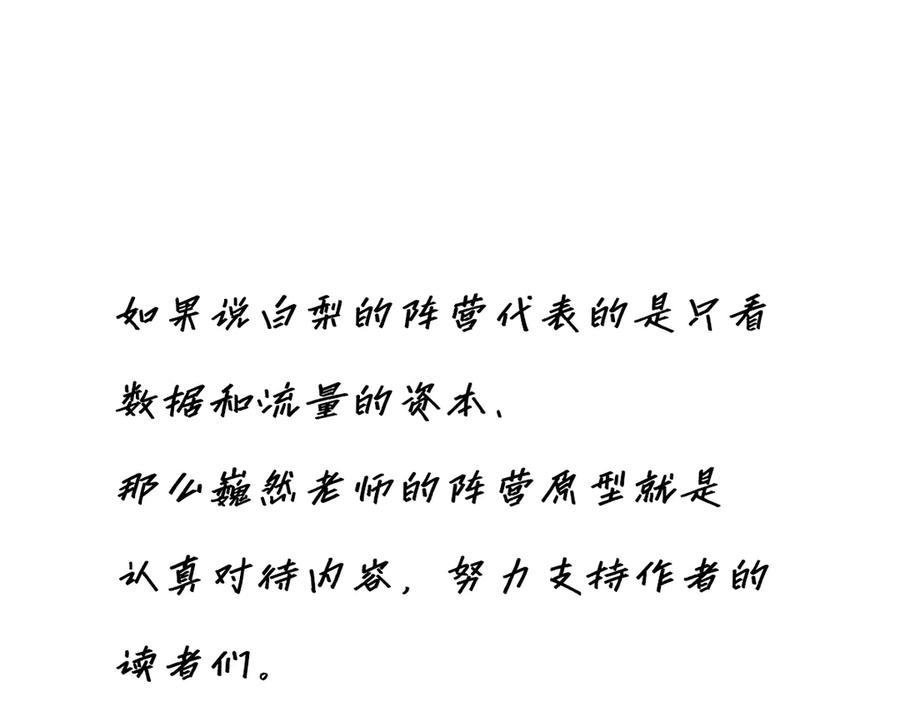 如果说白梨的阵营代表的是只看
数据和流量的资本、
那么巍然老师的阵营原型就是
认真对待内容，努力支持作者的
读者们。